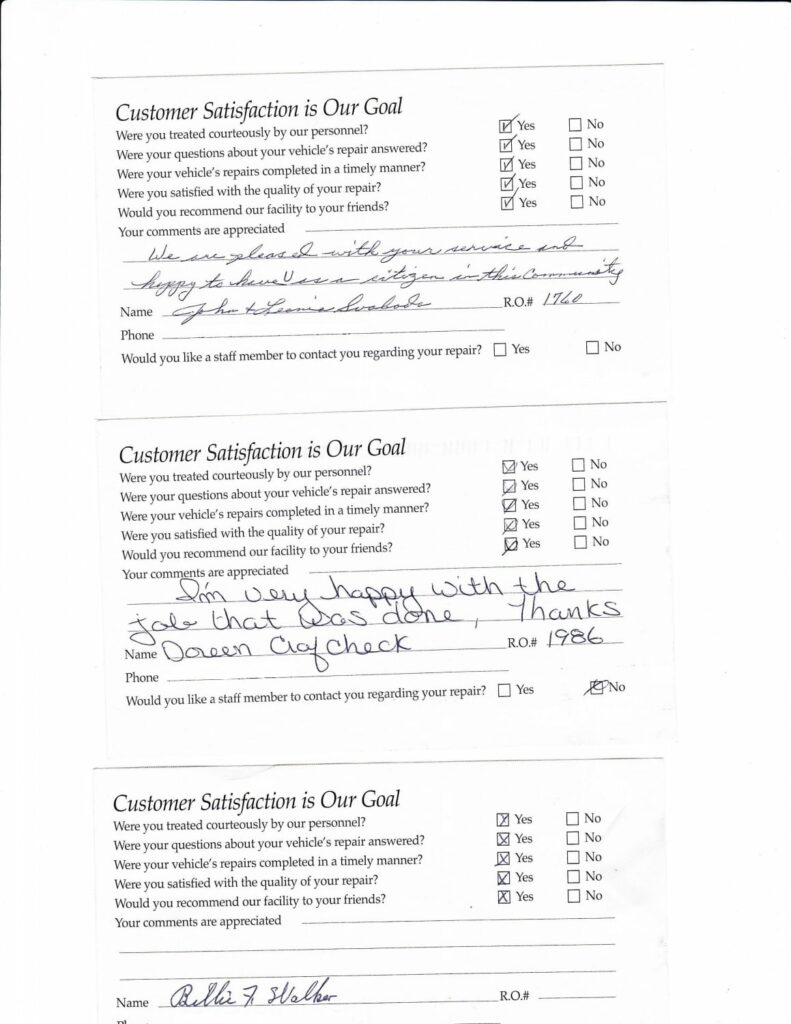 Customer Satisfaction is Our Goal
Were you treated courteously by our personnel? Yes No
Were your questions about your vehicle's repair answered? Yes No
Were your vehicle's repairs completed in a timely manner? Yes No
Were you satisfied with the quality of your repair? Yes No
Would you recommend our facility to your friends? Yes No
Your comments are appreciated
We are pleased with your service and
happy to have U as a citizen in this Community
Name John & Svoboda R.O.# 1760
Phone
Would you like a staff member to contact you regarding your repair? Yes No
Customer Satisfaction is Our Goal
Were you treated courteously by our personnel? Yes No
Were your questions about your vehicle's repair answered? Yes No
Were your vehicle's repairs completed in a timely manner? Yes No
Were you satisfied with the quality of your repair? Yes No
Would you recommend our facility to your friends? Yes No
Your comments are appreciated
I'm very happy with the
job that was done, Thanks
Name Doreen Crafcheck R.O.# 1986
Phone
Would you like a staff member to contact you regarding your repair? Yes No
Customer Satisfaction is Our Goal
Were you treated courteously by our personnel? Yes No
Were your questions about your vehicle's repair answered? Yes No
Were your vehicle's repairs completed in a timely manner? Yes No
Were you satisfied with the quality of your repair? Yes No
Would you recommend our facility to your friends? Yes No
Your comments are appreciated
Name Billie F. Walker R.O.#